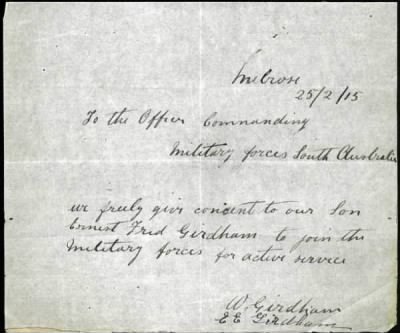 Melrose
25/2/15
To the Officer Commanding
Military forces South Australia
we freely give concent to our Son
Ernest Fred Girdham to join the
Military forces for active service
W. Girdham
E E Girdham